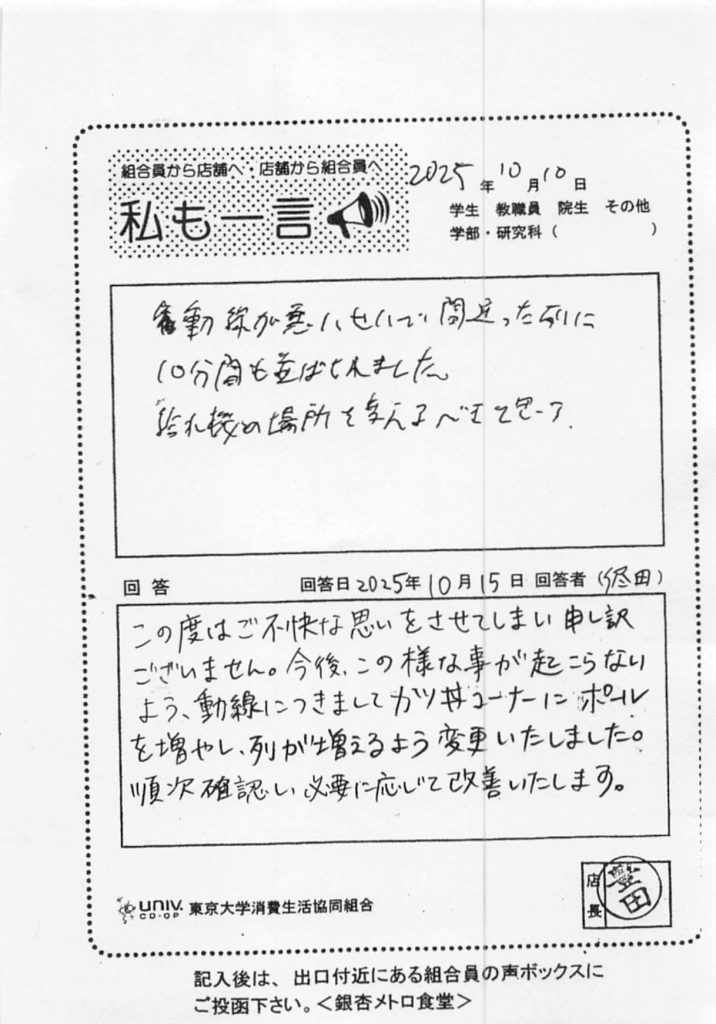 組合員から店舗へ・店舗から組合員へ
私も一言
2025年10月10日
学生 教職員 院生 その他
学部・研究科（ ）
動線が悪いせいで間違った列に
10分間も並ばされました。
給札機の場所を変えるべきと思う。
回答 回答日2025年10月15日 回答者（ 田）
この度はご不快な思いをさせてしまい申し訳
ございません。今後、この様な事が起こらない
よう、動線につきましてガツ丼コーナーにポール
を増やし、列が増えるよう変更いたしました。
順次確認し必要に応じて改善いたします。
UNIV. CO-OP 東京大学消費生活協同組合
店長 豊田
記入後は、出口付近にある組合員の声ボックスに
ご投函下さい。＜銀杏メトロ食堂＞